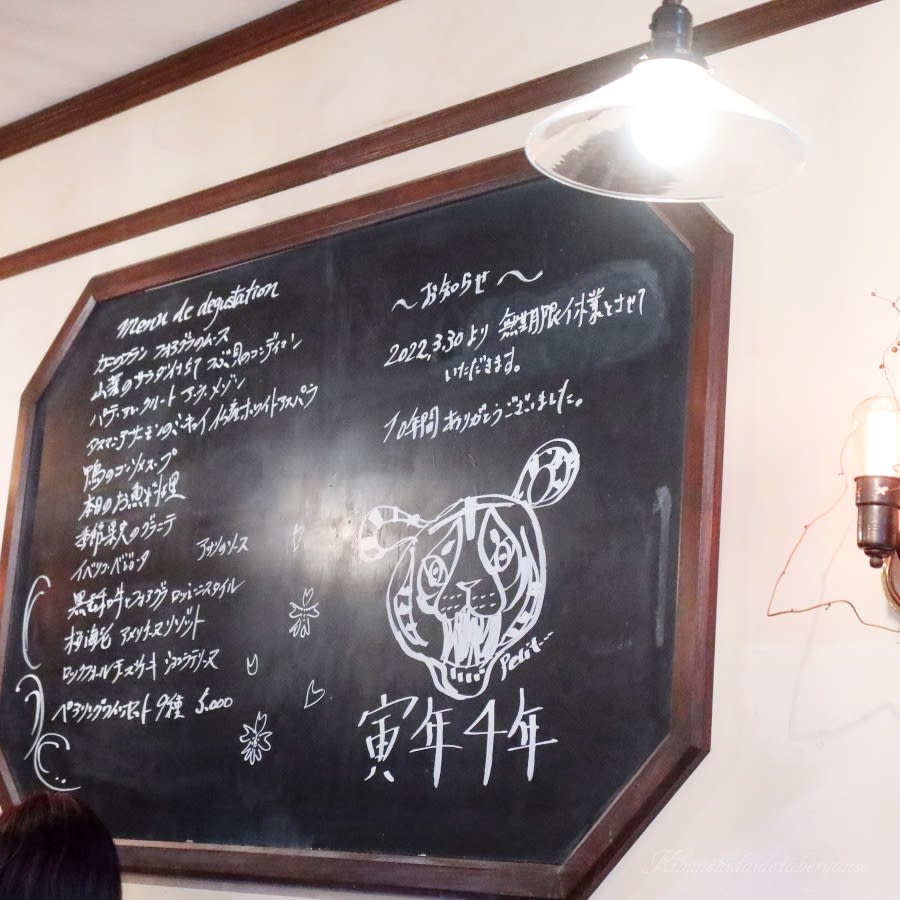 menu de degustation
カニのフラン フォアグラのムース
山菜のサラダ仕立て つぶ貝のコンディマン
パテ・アン・クルート ア・ラ・メゾン
タスマニアサーモンのミキュイ 仏産ホワイトアスパラ
鴨のコンソメスープ
本日のお魚料理
季節果実のグラニテ
イベリコ・ベジョータ アサリのソース
黒毛和牛とフォアグラ ロッシーニスタイル
桜海老 アメリケーヌリゾット
ロックフォールチーズケーキ ショコラテリーヌ
ペアリングワインセット 9種 5,000
〜お知らせ〜
2022.3.30より 無期限休業とさせて
いただきます。
10年間ありがとうございました。
Petit
寅年4年